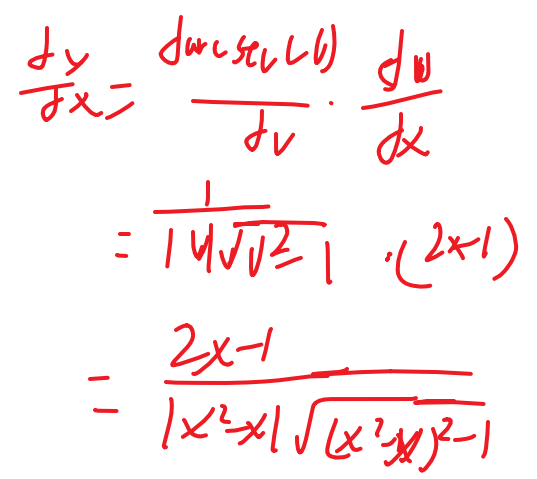 dy/dx = d arcsec(u)/du · du/dx
= 1/(|u|√(u²-1)) · (2x-1)
= (2x-1)/(|x²-x|√((x²-x)²-1))